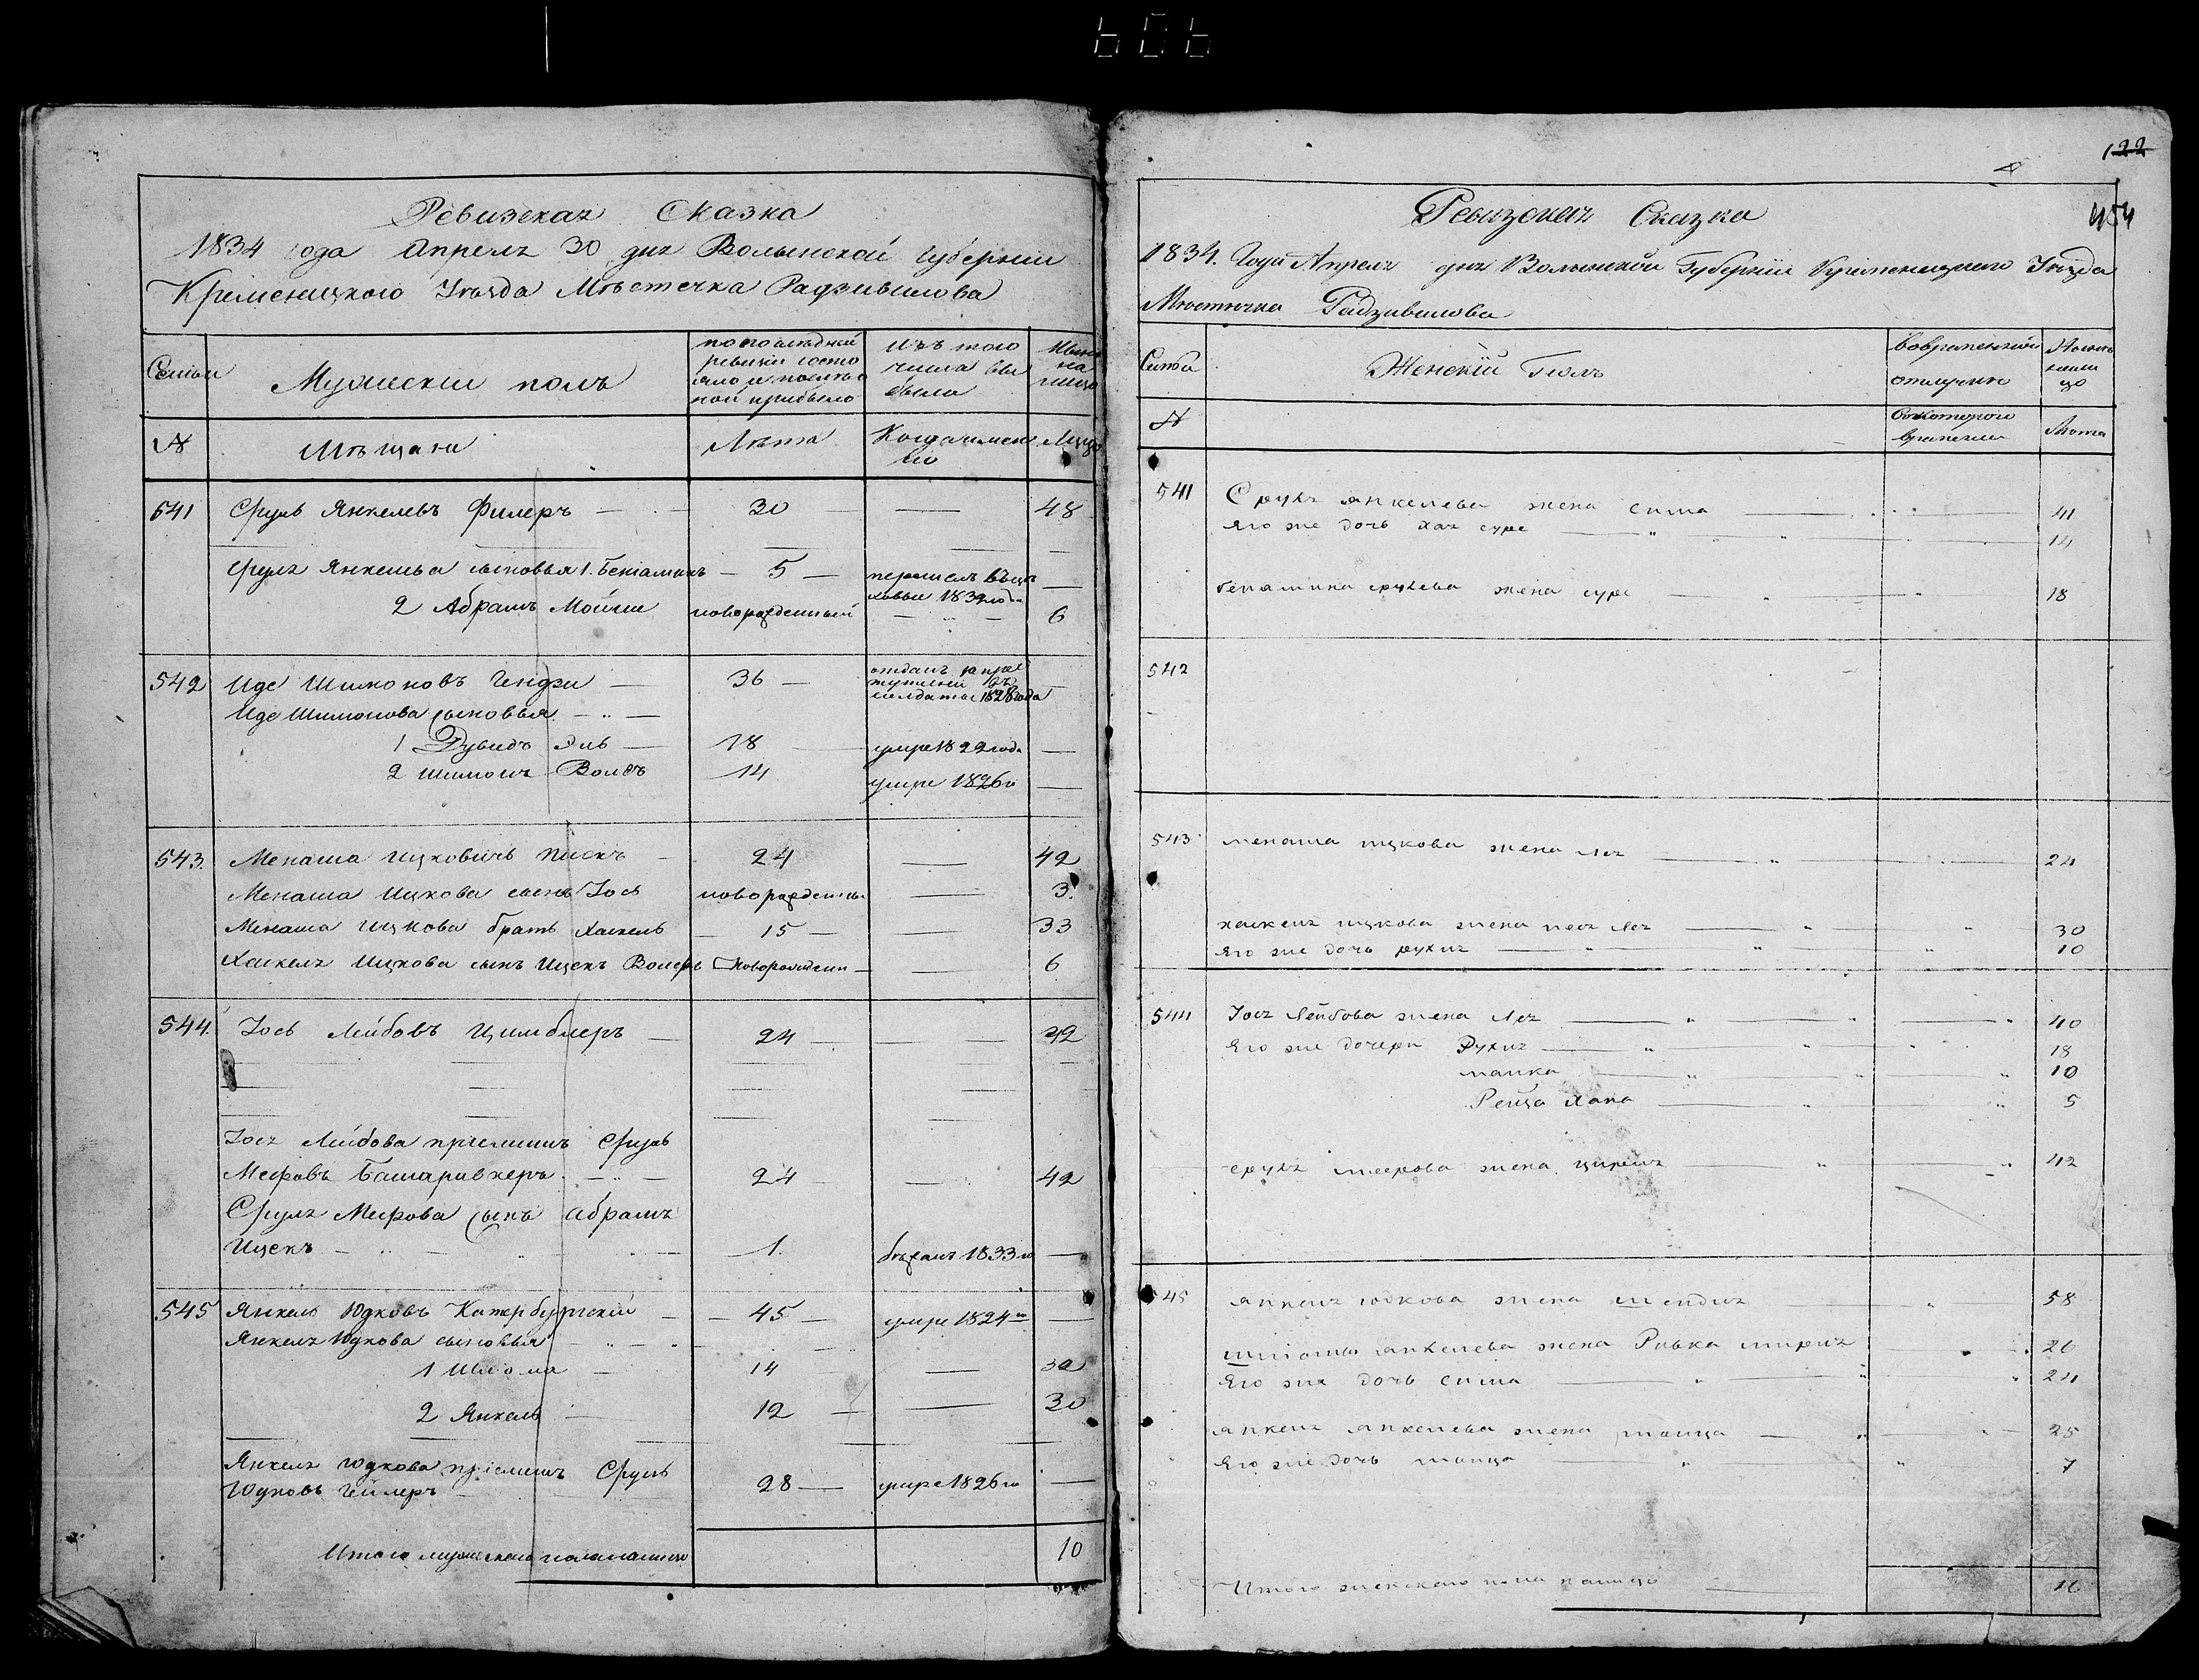 606
Ревизская Сказка
1834 года Апреля 30 дня Волынской Губернии
Кременецкого Уѣзда Мѣстечка Радзивилова
Семьи
Мужескій полъ
по последней ревизіи состояло и после оной прибыло
Изъ того числа выбыло
Ныне на лицо
№
Мѣщане
Лѣта
Когда именно
Лѣта
541 Сруль Янкелевъ Филеръ — 30 — 48
Сруля Янкелева сыновья 1. Бениаминъ — 5 — перешелъ въ цеховые 1832 года —
2 Абрамъ Мойше новорожденный — 6
542 Иде Шимоновъ — 36 — отданъ въ солдаты 1828 года —
Иде Шимонова сыновья
1 Дувидъ 18 умре 1822 года —
2 Шимонъ Волфъ 14 умре 1826 го —
543. Менаша Ицковичъ — 24 — 42
Менаша Ицкова сынъ Іось новорожденны — 3.
Менаша Ицкова братъ Хаскель — 15 — 33
Хаскеля Ицкова сынъ Ицекъ новорожденн — 6
544. Іось Лейбовъ Цимблеръ — 24 — 42
Іося Лейбова приемишъ Сруль
Меировъ Башаривкеръ — 24 — 42
Сруля Меирова сынъ Абрамъ
Ицекъ — 1. бѣжалъ 1833 го —
545 Янкель Юдковъ Катербургскій — 45 — умре 1824 го —
Янкеля Юдкова сыновья
1 Шлома — 14 — 32
2 Янкель — 12 — 30
Янкеля Юдкова приемишъ Сруль
Юдковъ — 28 — умре 1826 го —
Итого мужеского пола налицо 10
122
454
Ревизская Сказка
1834. Года Апреля дня Волынской Губерніи Кременецкого Уѣзда
Мѣстечка Радзивилова
Семьи
Женскій Полъ
Во временной отлучке
Ныне на лицо
№
Съ которого времени
Лѣта
541 Сруля Янкелева жена Сима — 41
Его же дочь Хая Суре — 14
Бениамина Срулева жена Суре — 18
542
543 Менаша Ицкова жена Лея — 24
Хаскеля Ицкова жена Песя Лея — 30
Его же дочь Рухля — 10
544 Іося Лейбова жена Лея — 40
Его же дочери Рухля — 18
Малка — 10
Рейза Хана — 5
Сруля Меерова жена Циреля — 42
545 Янкеля Юдкова жена Шендля — 58
Шліомы Янкелева жена Ривка Миреля 26
Его же дочь Сима — 24
Янкеля Янкелева жена — 25
Его же дочь — 7
Итого женского пола налицо 16